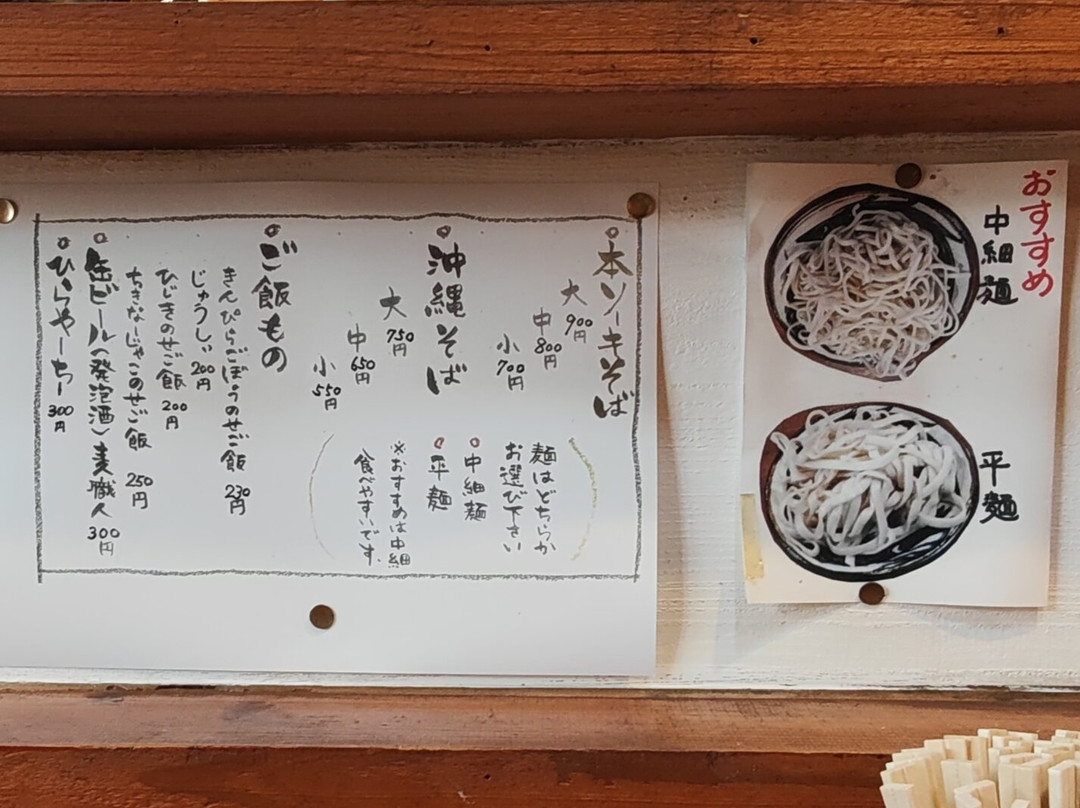 本ソーキそば
大 900円
中 800円
小 700円
麺はどちらか
お選び下さい
中細麺
平麺
※おすすめは中細
食べやすいです。
沖縄そば
大 750円
中 650円
小 550円
ご飯もの
きんぴらごぼうのせご飯 230円
じゅうしぃ 200円
ひじきのせご飯 200円
ちきなーじゃこのせご飯 250円
缶ビール(発泡酒)麦職人 300円
ひらやーちー 300円
おすすめ
中細麺
平麺